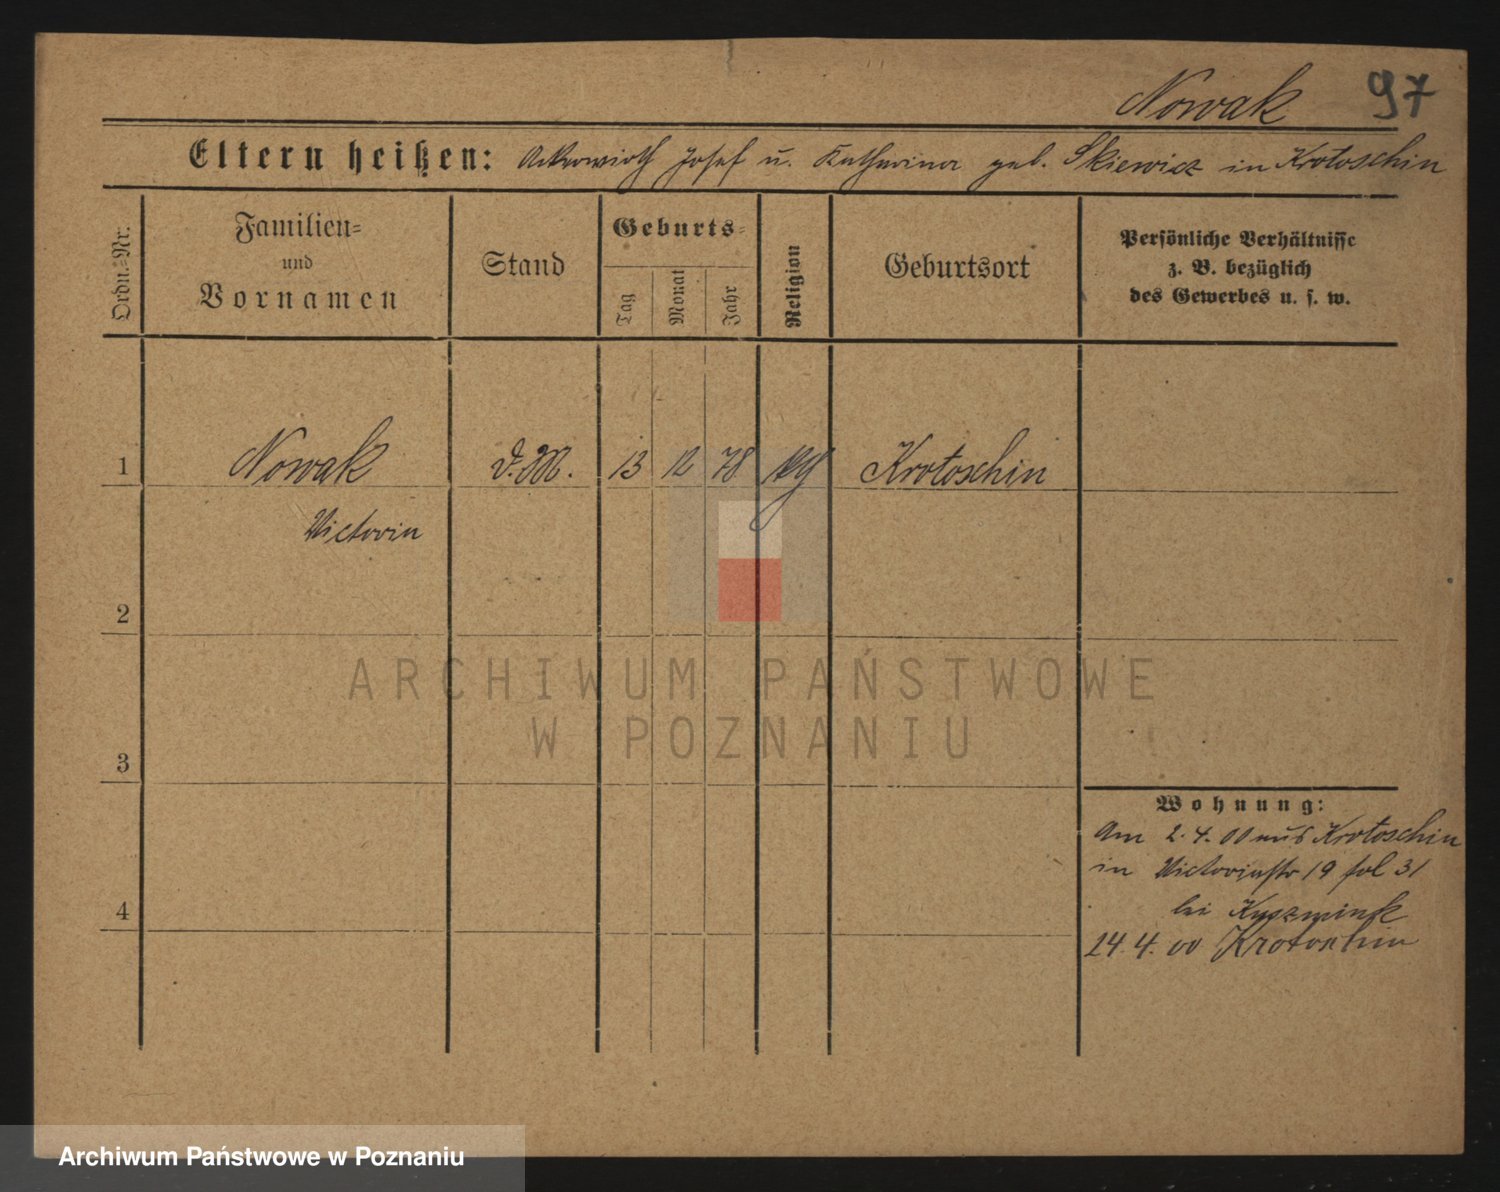 Nowak 97
Eltern heißen: Ackerwirth Josef u. Katharina geb. Skiewicz in Krotoschin
Ordn.-Nr.
Familien-
und
Vornamen
Stand
Geburts-
Tag
Monat
Jahr
Religion
Geburtsort
Persönliche Verhältnisse
z. B. bezüglich
des Gewerbes u. s. w.
1 Nowak D.M. 13 12 78 Krotoschin
Victoria
2
3
4
Wohnung:
Am 2.4.00 aus Krotoschin
in Victoriastr 19 fol 31
bei
24.4.00 Krotoschin
ARCHIWUM PAŃSTWOWE
W POZNANIU
Archiwum Państwowe w Poznaniu